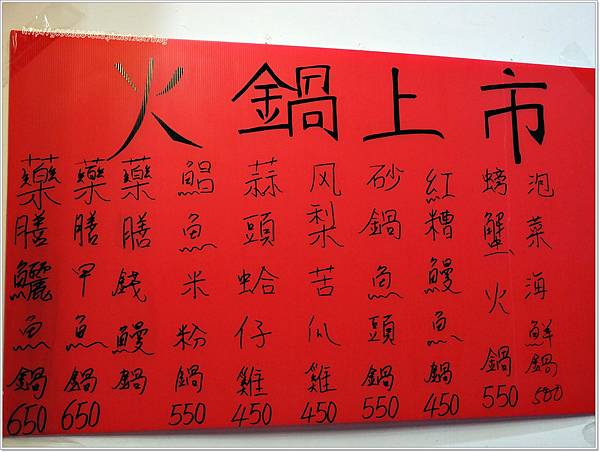 火鍋上市
泡菜海鮮鍋 500
螃蟹火鍋 550
紅糟鰻魚鍋 450
砂鍋魚頭鍋 550
风梨苦瓜雞 450
蒜頭蛤仔雞 450
鯧魚米粉鍋 550
藥膳錢鰻鍋
藥膳甲魚鍋 650
藥膳鱺魚鍋 650